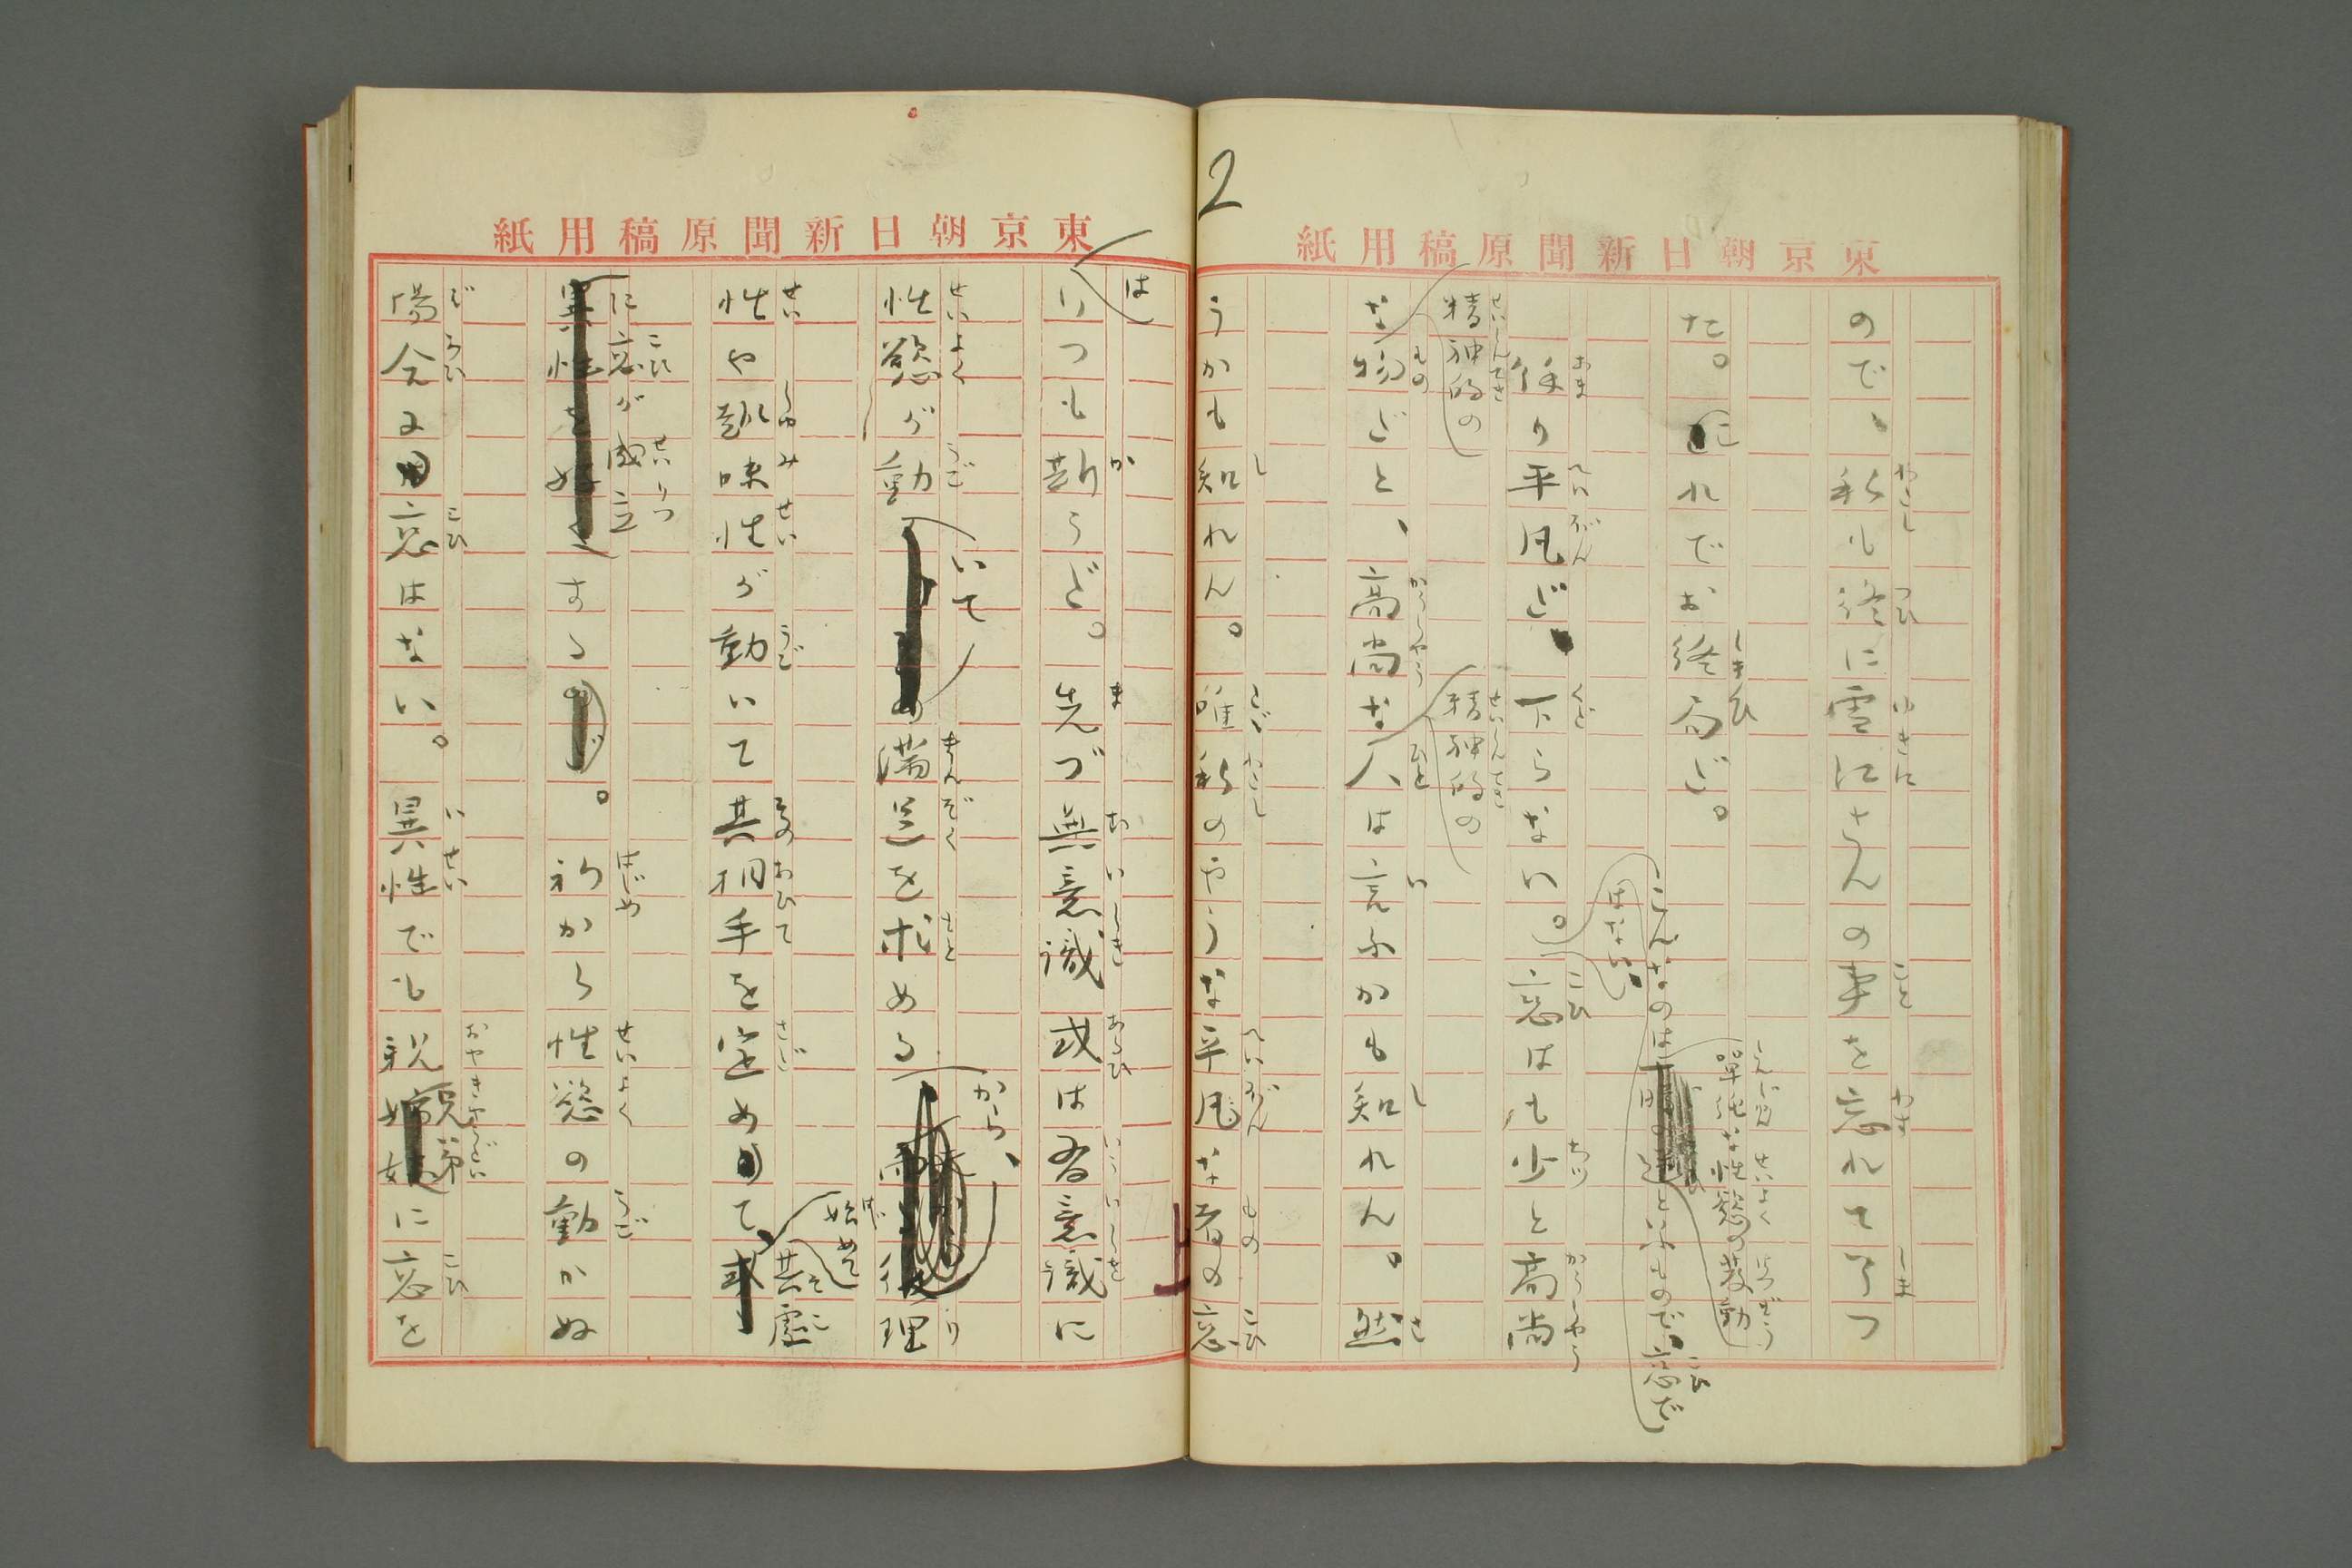 東京朝日新聞原稿用紙
ので、私も終に雪江さんの事を忘れて了つ
た。これでお終局だ。
余り平凡だ。下らない。こんなのは単純な性慾の発動といふもので、恋で
はない。恋はも少と高尚
精神的の
な物だと、高尚な精神的の人は言ふかも知れん。然
うかも知れん。唯私のやうな平凡な者の恋
2
東京朝日新聞原稿用紙
は
いつも斯うだ。先づ無意識或は有意識に
性慾が動いて満足を求めるから、理
性や趣味性が動いて其相手を定めて、始めて其処
に恋が成立する。初から性慾の動かぬ
場合に恋はない。異性でも親兄弟に恋を